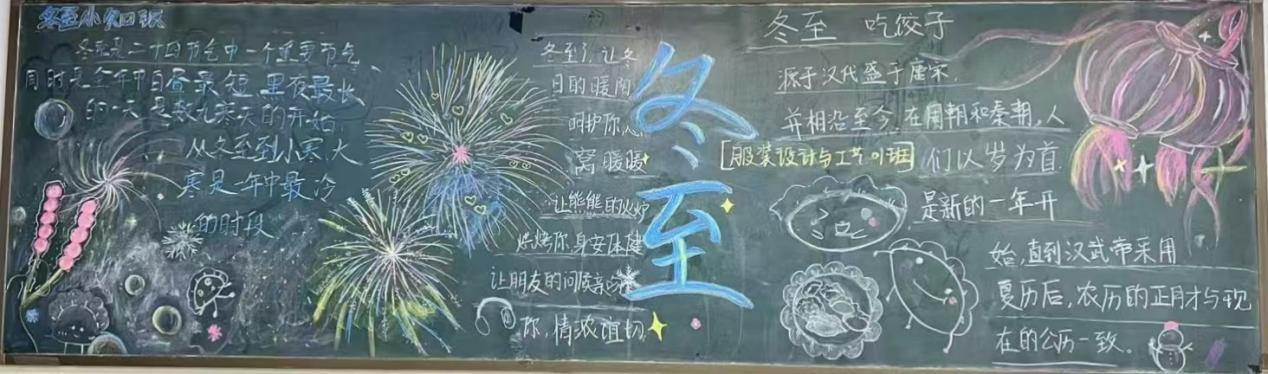 冬至小知识
冬至是二十四节气中一个重要节气、
同时是全年中白昼最短,黑夜最长
的一天是数九寒天的开始.
从冬至到小寒,大
寒是一年中最冷
的时段
冬至了,让冬
日的暖阳
呵护你
窝暖暖
让熊熊的火炉
烘烤你,身安体健
让朋友的问候亲
你,情浓谊切
冬至
冬至 吃饺子
源于汉代盛于唐宋,
并相沿至今,在周朝和秦朝,人
[服装设计与工艺1班]
们以岁为首
是新的一年开
始,直到汉武帝采用
夏历后,农历的正月才与现
在的公历一致。